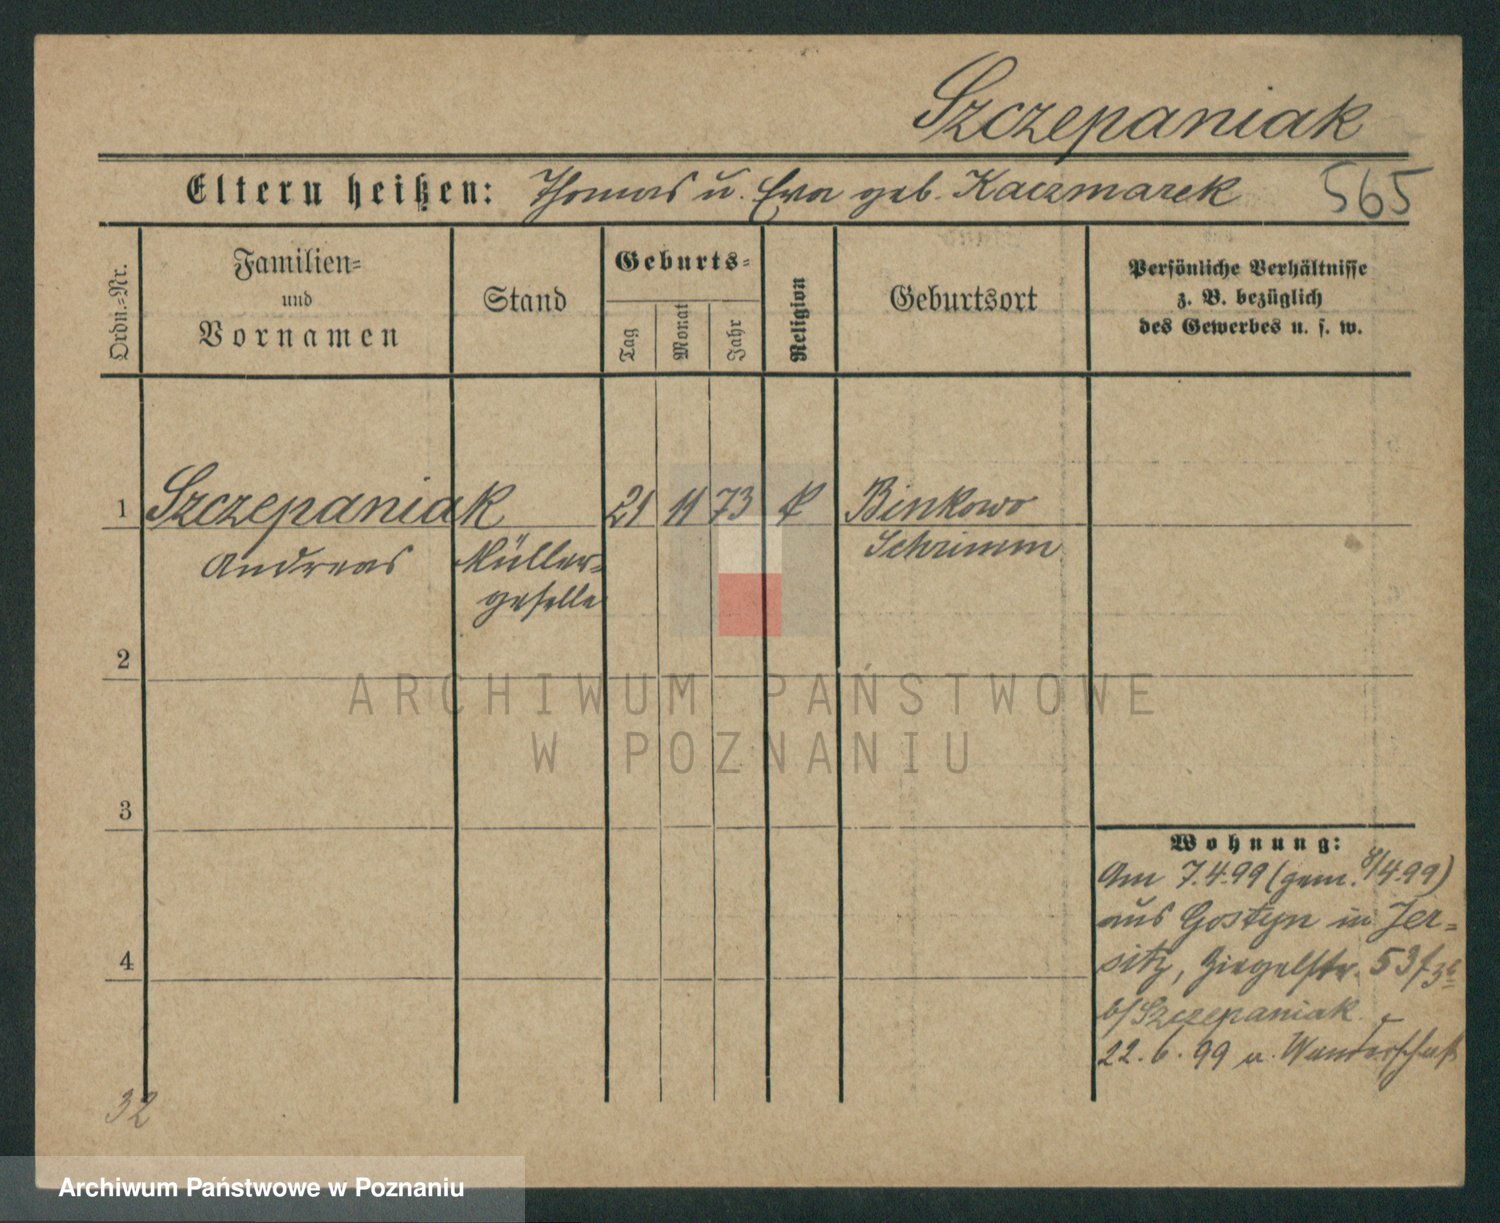 Szczepaniak
Eltern heißen: Thomas u. Eva geb. Kaczmarek 565
Ordn.=Nr.
Familien=
und
Vornamen
Stand
Geburts=
Tag
Monat
Jahr
Religion
Geburtsort
Persönliche Verhältnisse
z. B. bezüglich
des Gewerbes u. s. w.
1 Szczepaniak 21 11 73 Binkowo
Andreas Müller= Schrimm
geselle
2
ARCHIWUM PAŃSTWOWE
W POZNANIU
3
4
Wohnung:
Am 7.4.99 (gem. 8/4.99)
aus Gostyn in Jer=
sitz, Ziegelstr. 53
b/Szczepaniak
22.6.99 a. Wanderschaft
32
Archiwum Państwowe w Poznaniu